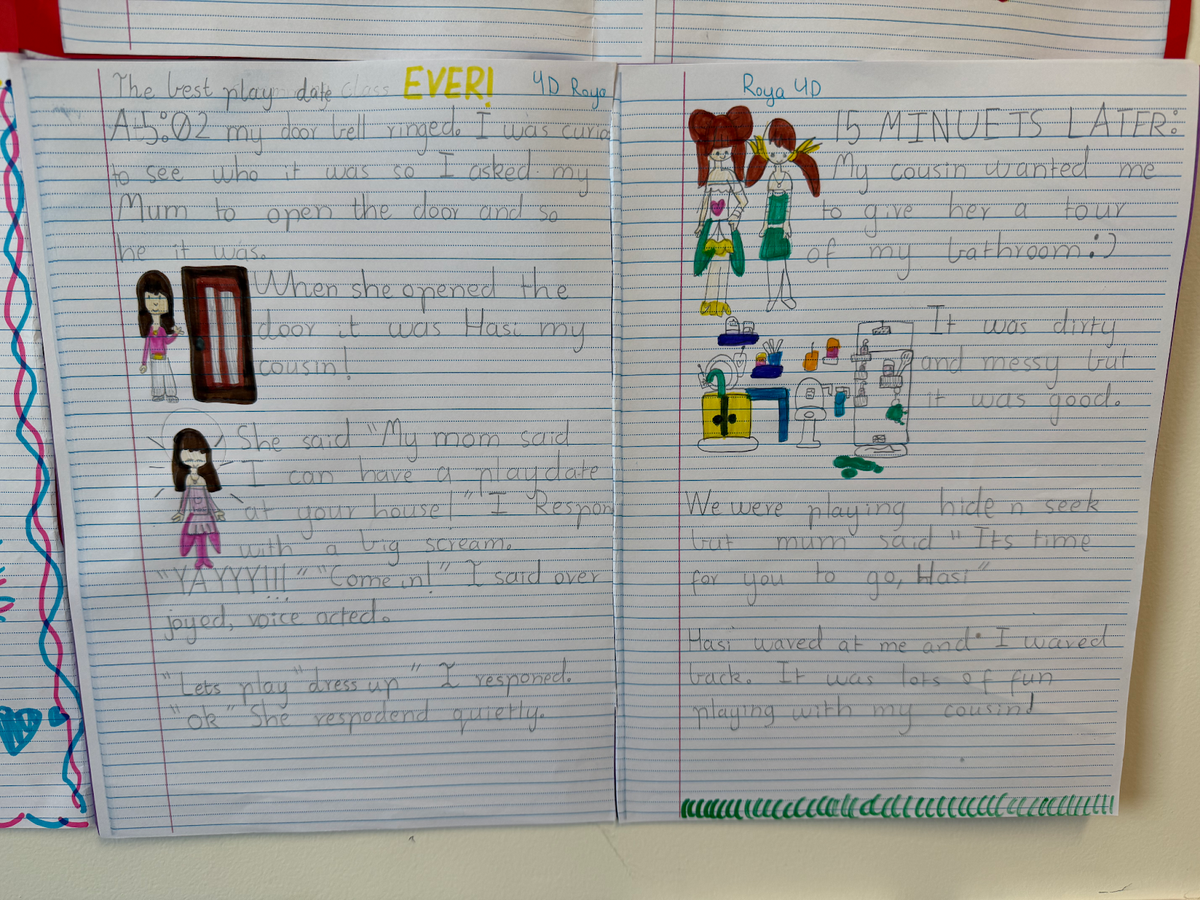 The best play date class EVER! 4D Roya
At 5:02 my door bell ringed. I was curio
to see who it was so I asked my
Mum to open the door and so
he it was.
When she opened the
door it was Hasi my
cousin!
She said "My mom said
I can have a playdate
at your house!" I Respon
with a big scream.
"YAYYY!!!" "Come in!" I said over
joyed, voice acted.
"Lets play "dress up" I responed.
"ok" She respodend quietly.
Roya 4D
15 MINUETS LATER:
My cousin wanted me
to give her a tour
of my bathroom:)
It was dirty
and messy but
it was good.
We were playing hide n seek
but mum said "Its time
for you to go, Hasi"
Hasi waved at me and I waved
back. It was lots of fun
playing with my cousin!